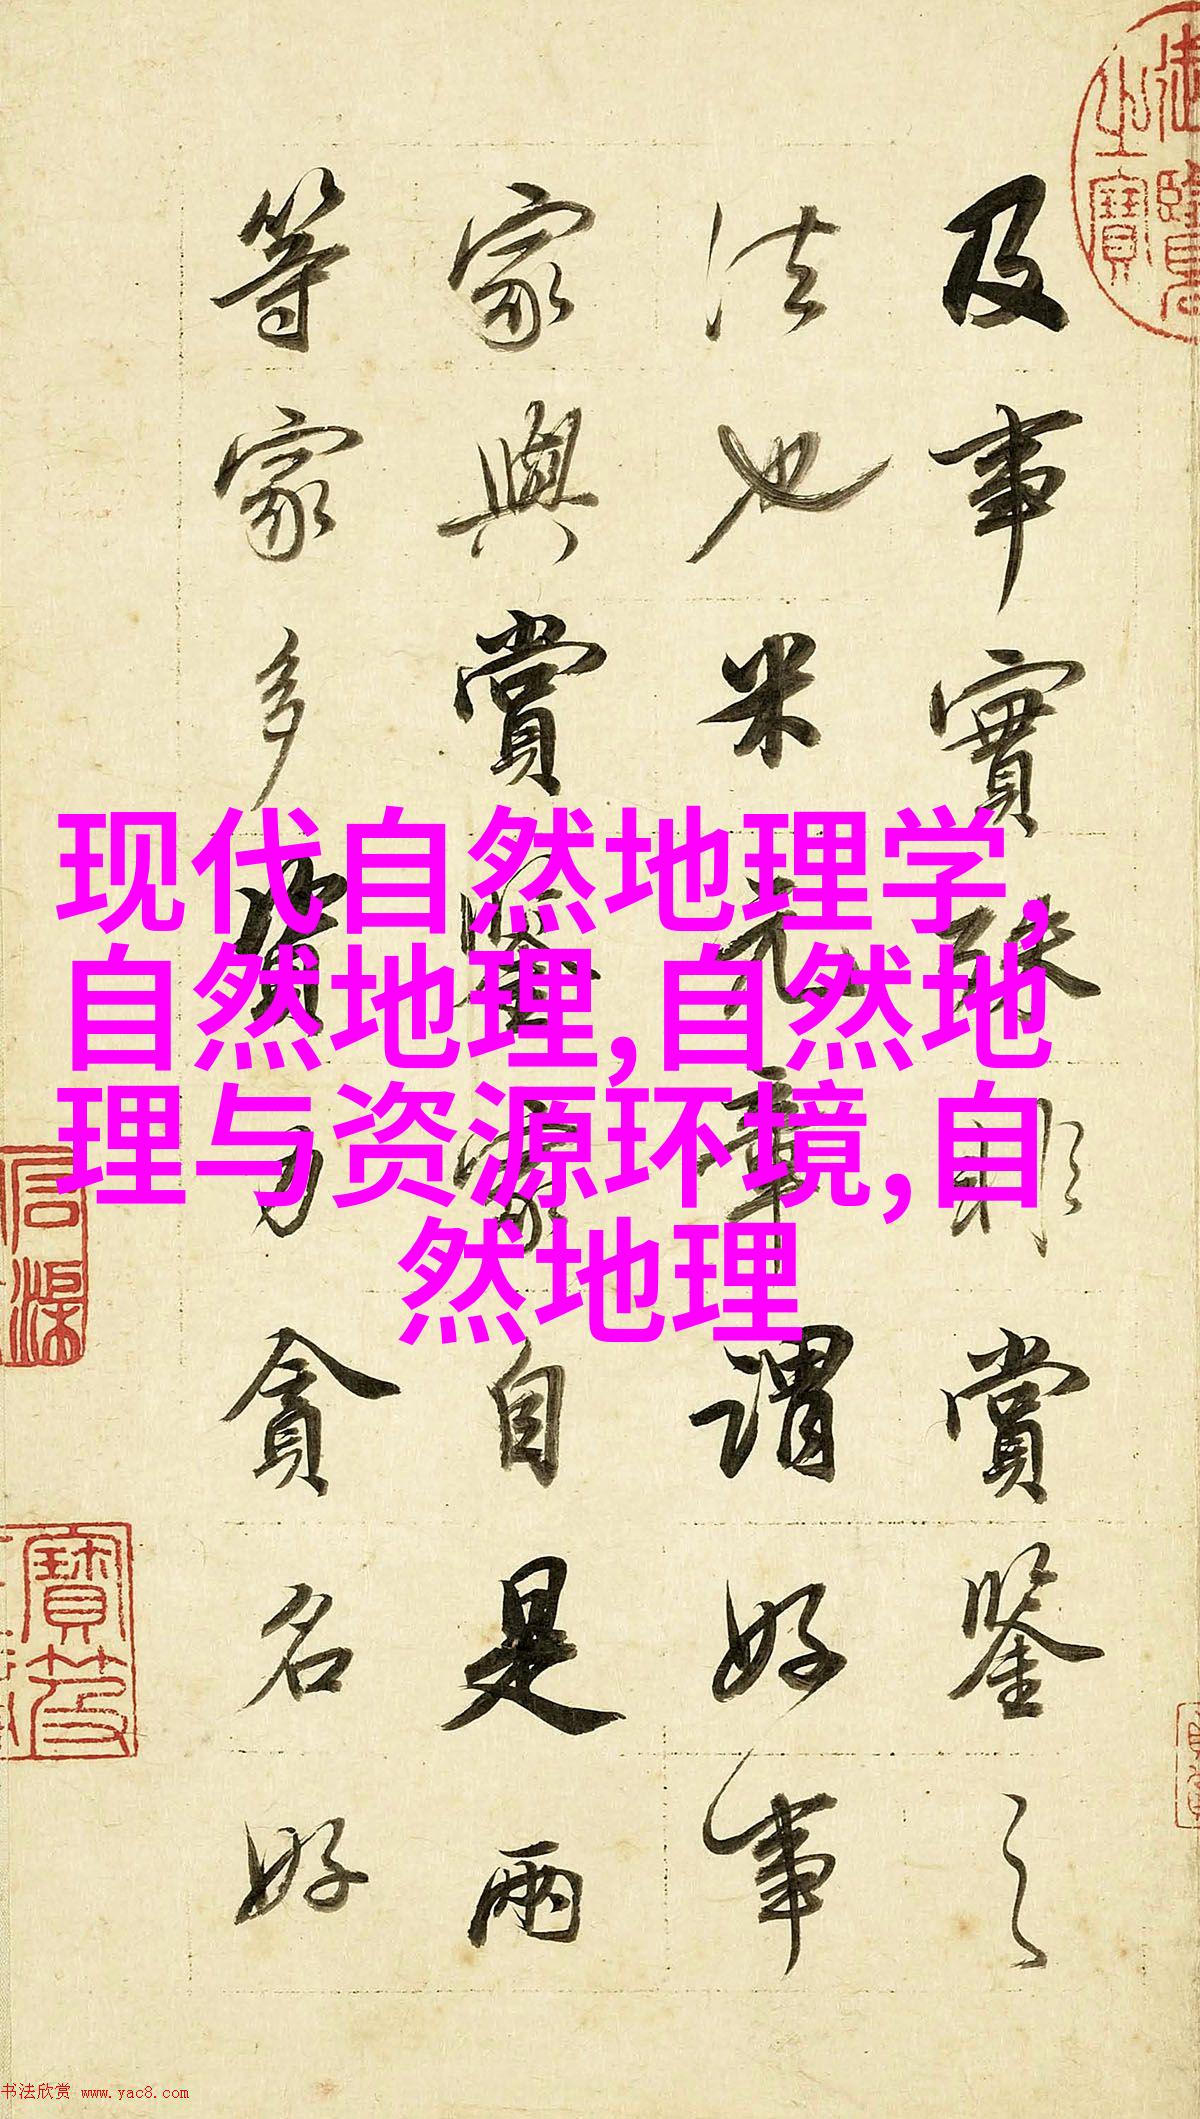 御覽之寶
及事實賞鑒之
法也米元章謂好事
家與賞鑒家自是兩
等家多資力貪名好
现代自然地理学,
自然地理,自然地
理与资源环境,自
然地理
书法欣赏 www.yac8.com